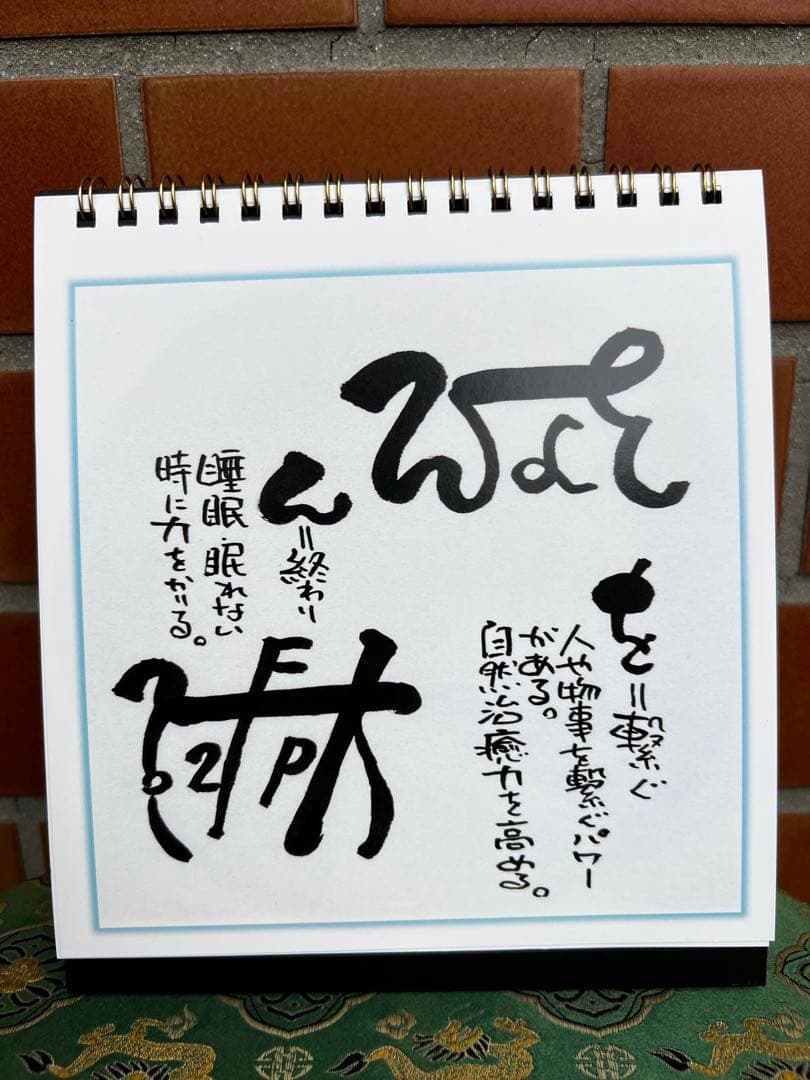 を=繋ぐ
人や物事を繋ぐパワー
がある。
自然治癒力を高める。
ん=終わり
睡眠・眠れない
時に力をかりる。